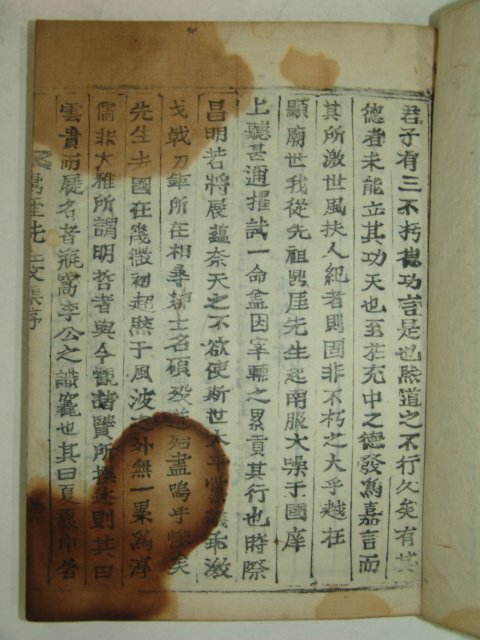 君子有三不朽德功言是也然道之不行久矣有其
德者未能立其功天也至於充中之德發爲嘉言而
其所激世風扶人紀者則固非不朽之大乎越在
顯廟世我從先祖鼎厓先生起南服大噪于國庠
上聽甚邇擢試一命盖因宰輔之累貢其行也時際
昌明若將展蘊奈天之不欲使斯世太平黨議乖激
戈戟刀鉅所在相尋名士碩殆盡嗚乎慘矣
先生去國在幾微初起然于風波之外無一累爲淳
儒非大雅所謂明哲者與今觀諸賢所撰述則其曰
雲貴而展名者瓶窩李公之識竁也其曰夏
鼎厓先生文集序